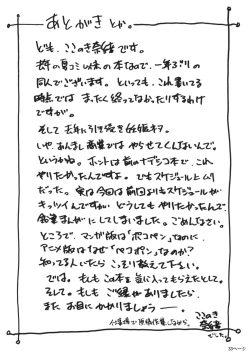 あとがきとか。
ども、ここのき奈緒です。
去年の夏コミ以来の本なので、一年ぶりの
同人でございます。といっても、これ書いてる
時点では まったく終ってなかったりするわけ
ですが。
そして 去年に引き続き妊娠ネタ。
いや、あんまし商業では やらせてくんないんで。
というかね。ホントは前のナデシコ本で、これ
やりたかったんですよ。でもスケジュール的にムリ
だった。実は今回は前回よりもスケジュールが
キッツイんですがい どうしても やりたかったんで、
全書まんがにしてしまいました。ごめんなさい。
ところで、マンガ版は「ポコペン」なのに、
アニメ版はなぜ「ペコポン」なのか？
知ってる人いたら こっそり教えて下さい。
では。もしもこの本を気に入ってもらえたとして、
そして。もしも ご縁がありましたら、
また お目にかかりましょう――。
仕事場で原稿作業しながら。
ここのき
奈緒
でした。
33ページ